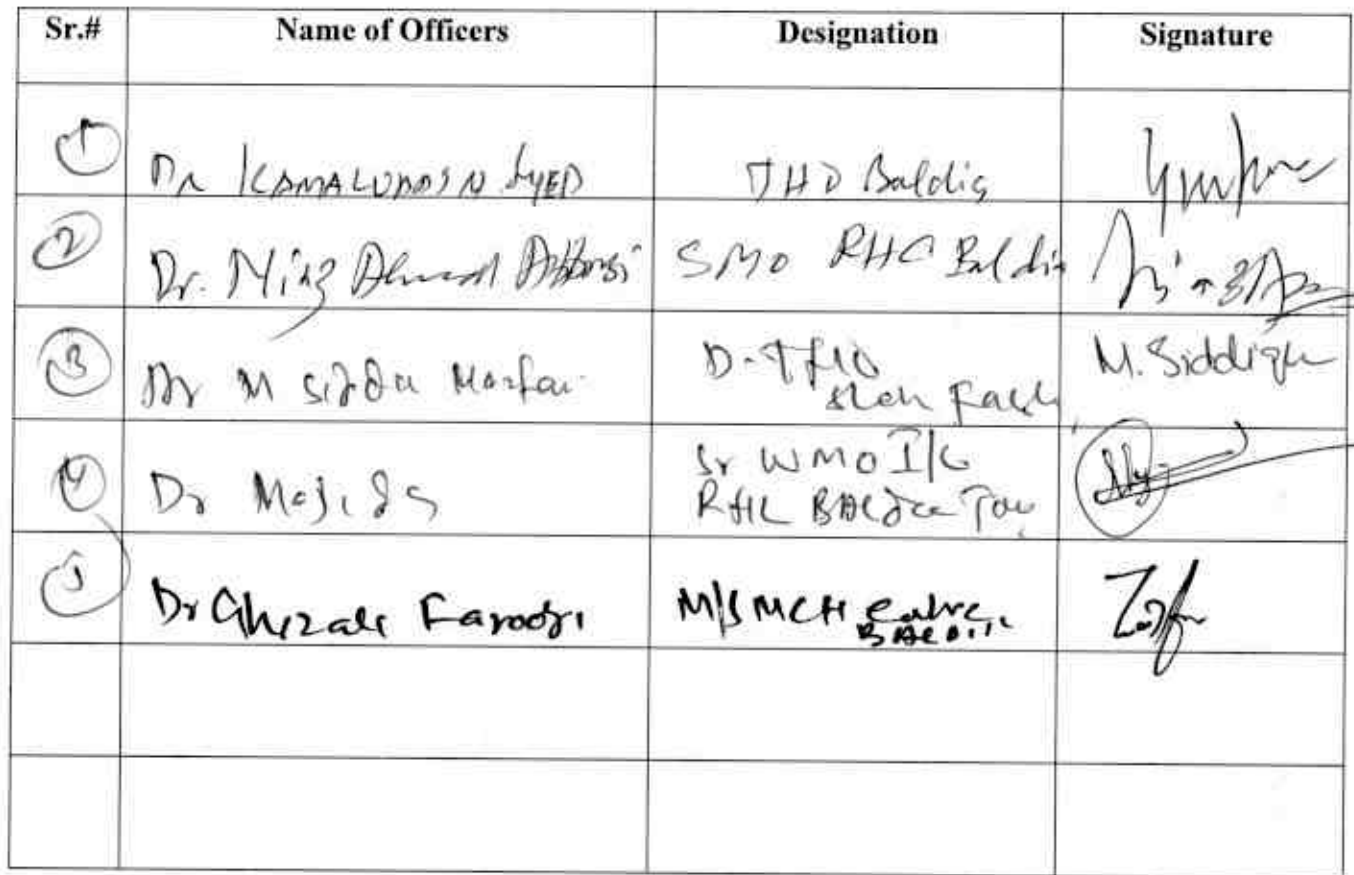 Sr.# Name of Officers Designation Signature
1 Dr KAMALUDDIN SYED THO Baldia
2 Dr. Niaz Ahmed Abbasi SMO RHC Baldia
3 Dr M M. Siddiqu
D-THO
4 Dr Majida Sr WMO I/C
RHC BALdia Tow
5 Dr Ghazala Farooqi M/S MCH Centre
BALDIA